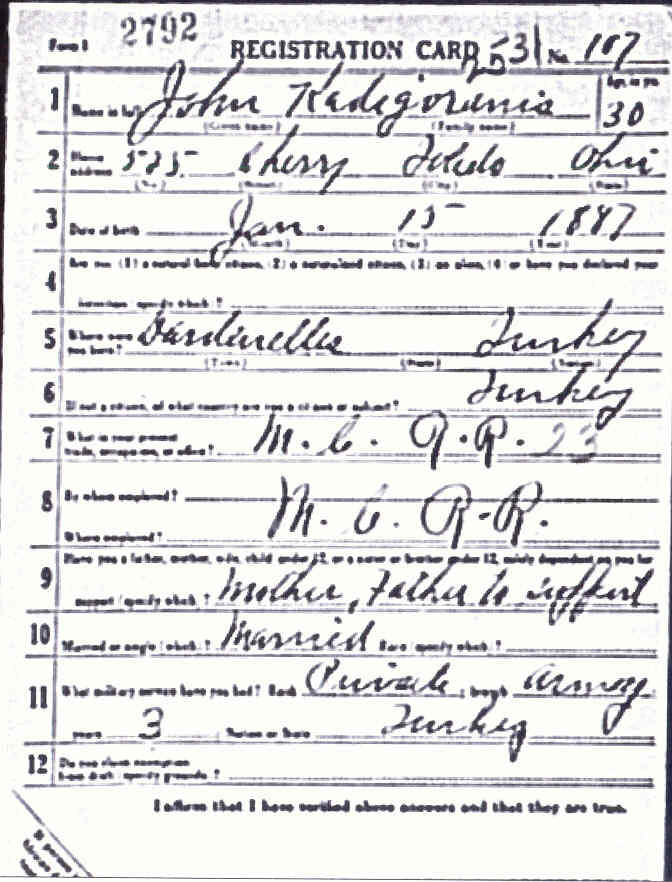 Form 1 2792 REGISTRATION CARD 531 No. 107
1 Name in full John Kadegorenis Age, in yrs. 30
(Given name) (Family name)
2 Home address 525 Cherry Toledo Ohio
(No.) (Street) (City) (State)
3 Date of birth Jan. 15 1887
(Month) (Day) (Year)
4 Are you (1) a natural born citizen, (2) a naturalized citizen, (3) an alien, (4) or have you declared your
intention (specify which)?
5 Where were you born? Dardinelles Turkey
(Town) (State) (Nation)
6 If not a citizen, of what country are you a citizen or subject? Turkey
7 What is your present trade, occupation, or office? M. C. R.R. 23
8 By whom employed? M. C. R-R.
Where employed?
9 Have you a father, mother, wife, child under 12, or a sister or brother under 12, solely dependent on you for
support (specify which)? Mother, Father to support
10 Married or single (which)? Married Race (specify which)?
11 What military service have you had? Rank Private ; branch army
years 3 ; Nation or State Turkey
12 Do you claim exemption from draft (specify grounds)?
I affirm that I have verified above answers and that they are true.